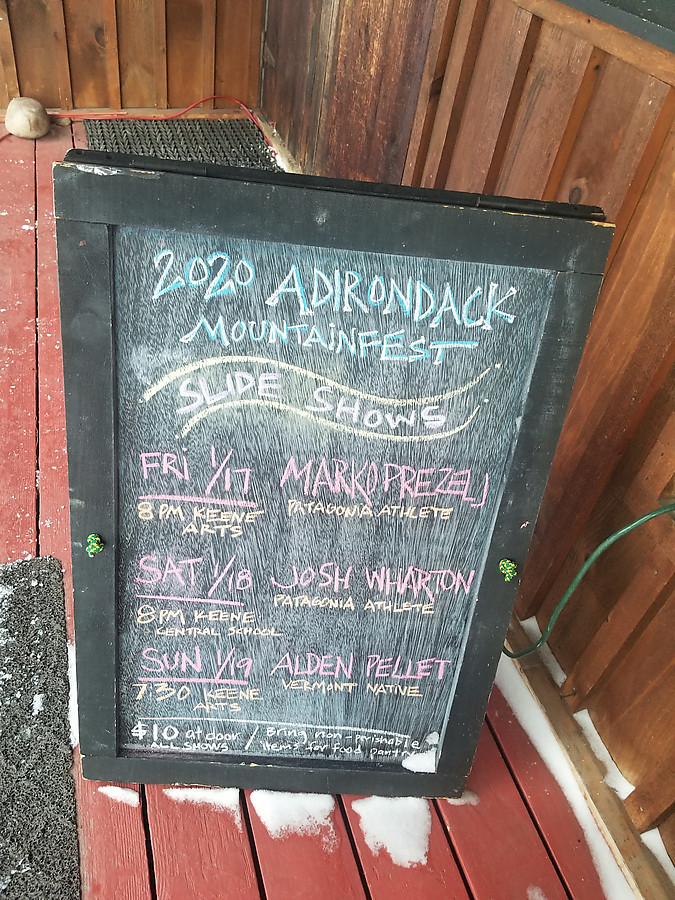 2020 ADIRONDACK
MOUNTAINFEST
SLIDE SHOWS
FRI 1/17 MARKO PREZELJ
8PM KEENE ARTS PATAGONIA ATHLETE
SAT 1/18 JOSH WHARTON
8PM KEENE CENTRAL SCHOOL PATAGONIA ATHLETE
SUN 1/19 ALDEN PELLET
730 KEENE ARTS VERMONT NATIVE
$10 at door / Bring non-perishable
ALL SHOWS items for food pantry